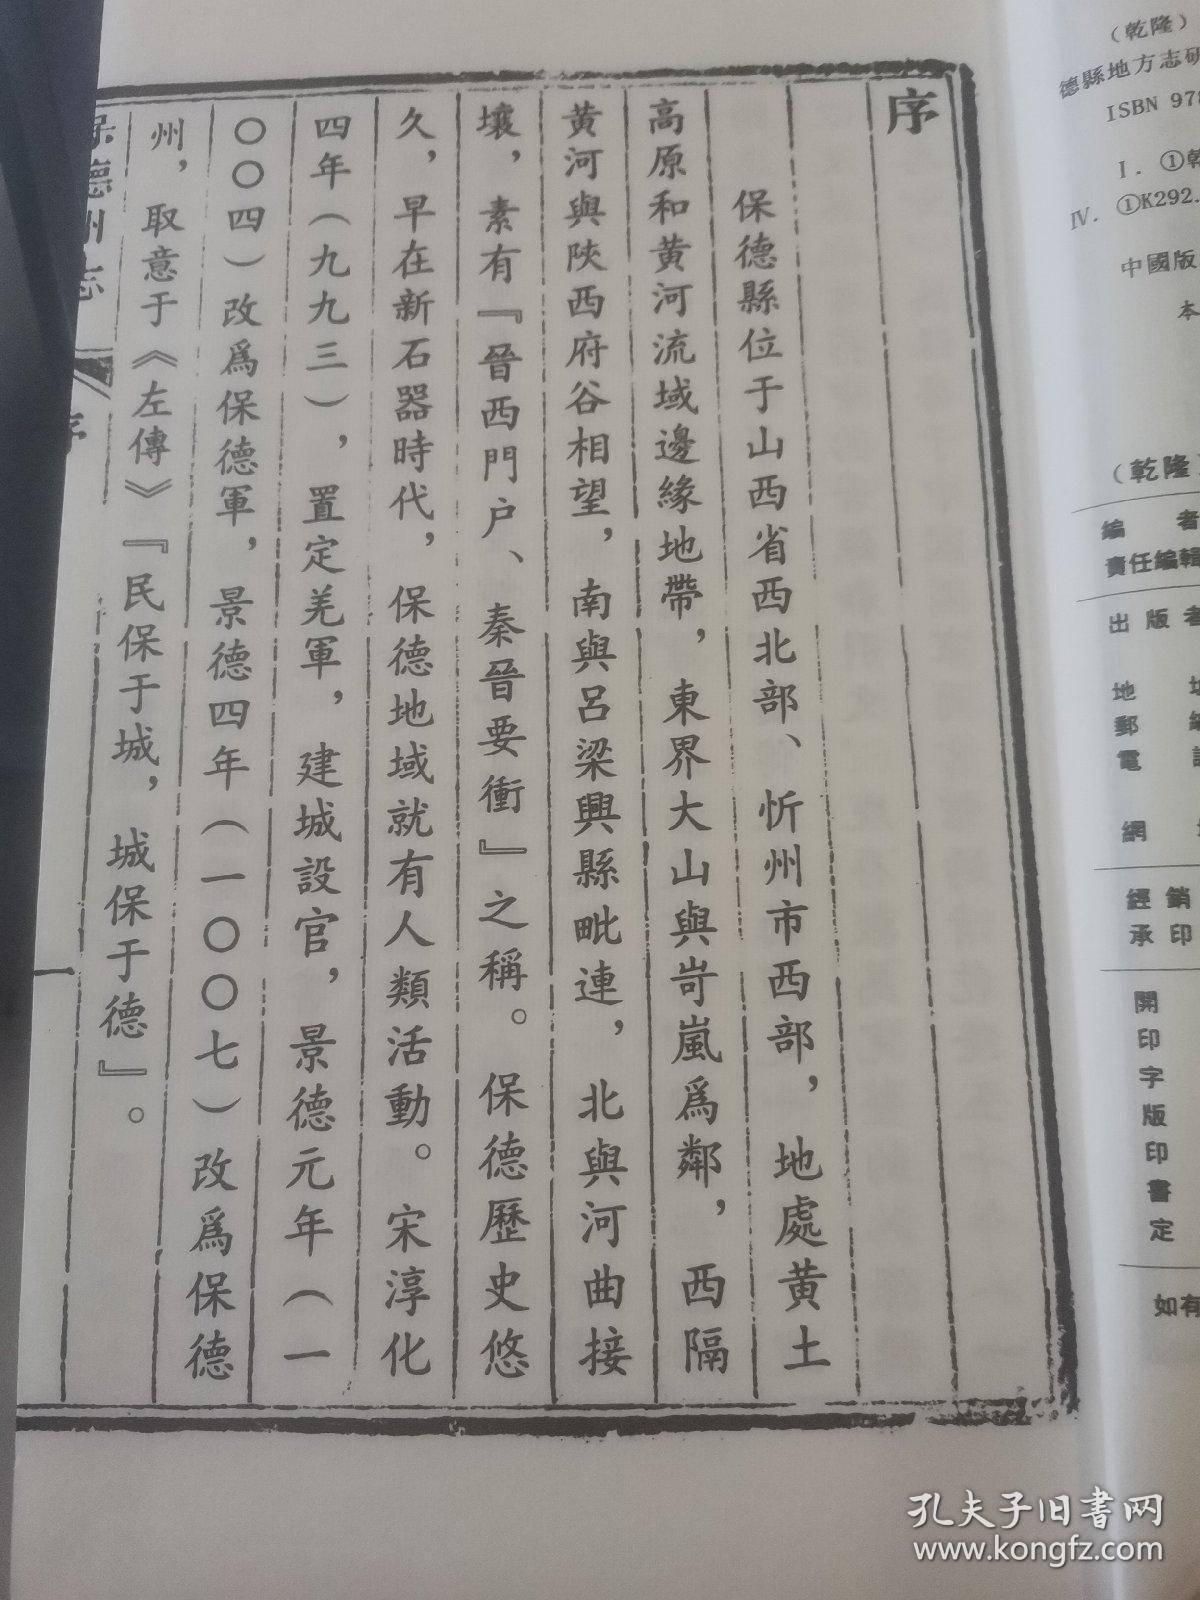 （乾隆）
德縣地方志研
ISBN 978
Ⅰ. ①乾
Ⅳ. ①K292.
中國版
本
（乾隆）
編　者
責任編輯
出版者
地
郵
電
網
經銷
承印
開
印
字
版
印
書
定
如有
序
保德縣位于山西省西北部、忻州市西部，地處黄土
高原和黄河流域邊緣地帶，東界大山與岢嵐爲鄰，西隔
黄河與陝西府谷相望，南與呂梁興縣毗連，北與河曲接
壤，素有『晉西門户、秦晉要衝』之稱。保德歷史悠
久，早在新石器時代，保德地域就有人類活動。宋淳化
四年（九九三），置定羌軍，建城設官，景德元年（一
〇〇四）改爲保德軍，景德四年（一〇〇七）改爲保德
州，取意于《左傳》『民保于城，城保于德』。
保德州志　序　一
孔夫子旧书网
www.kongfz.com